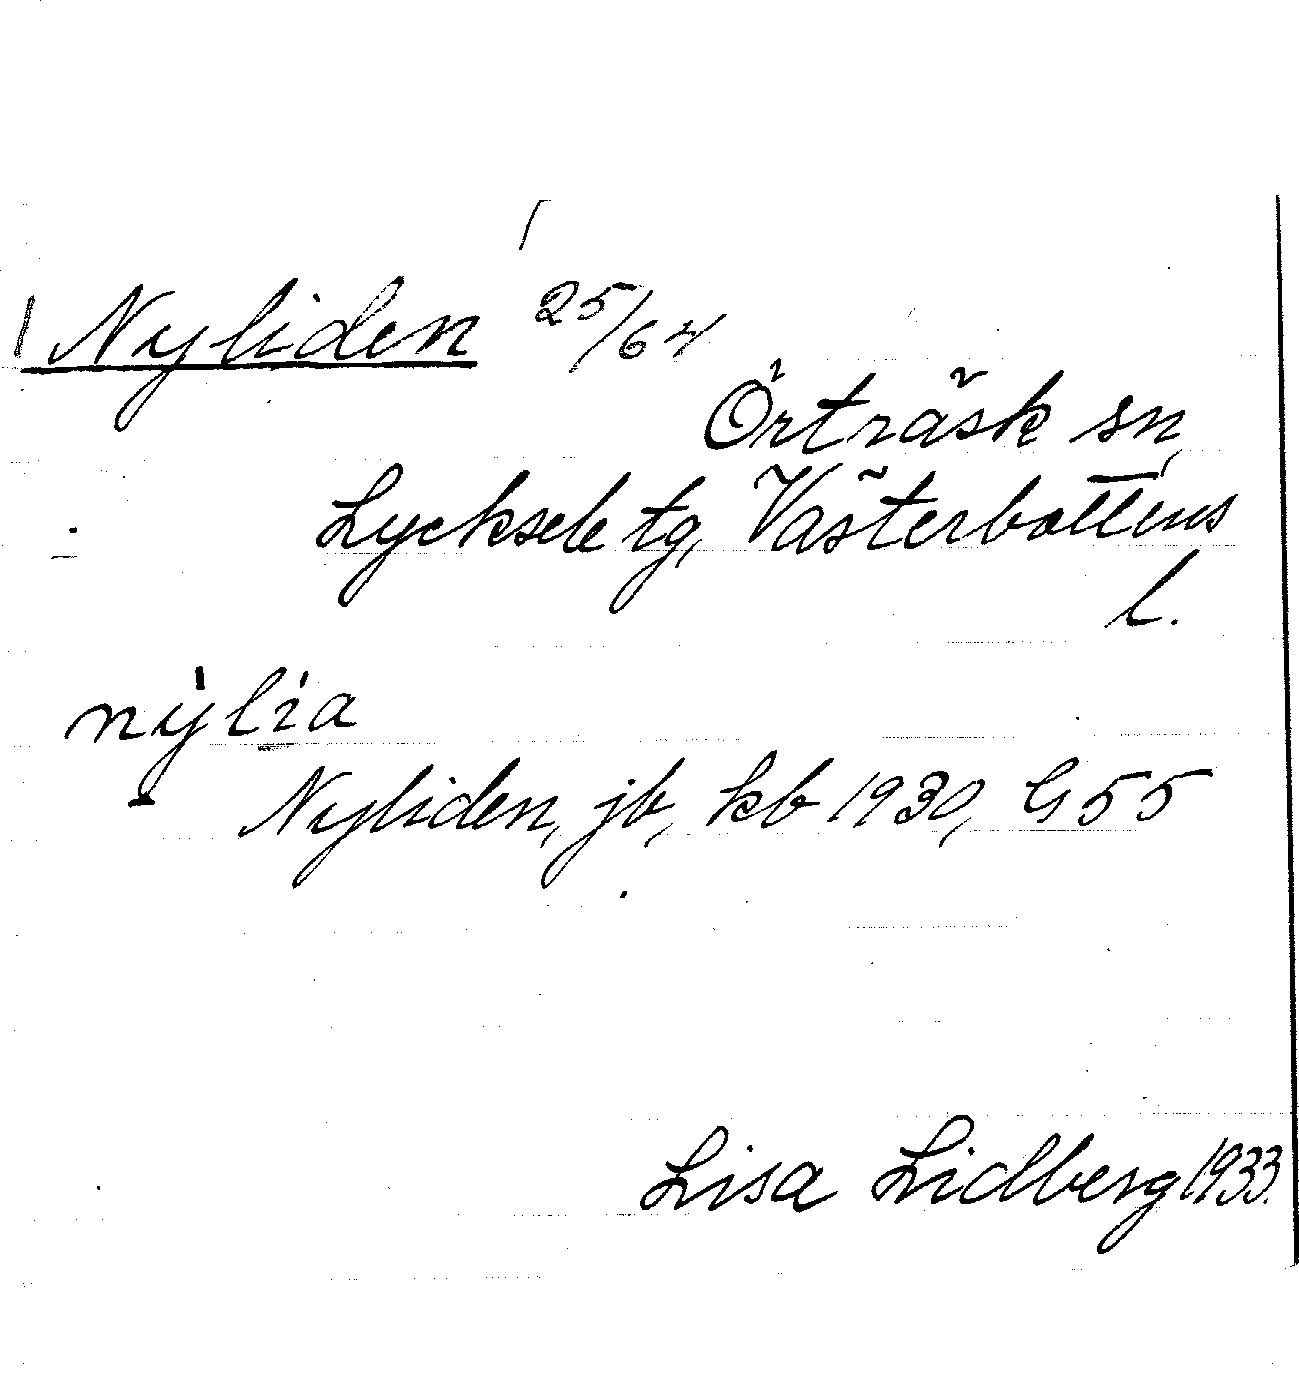 Nyliden 25/64
Örträsk sn,
Lycksele tg, Västerbottens
l.
nỳlìa
Nyliden, jb, kb 1930, G55
Lisa Lidberg 1933.